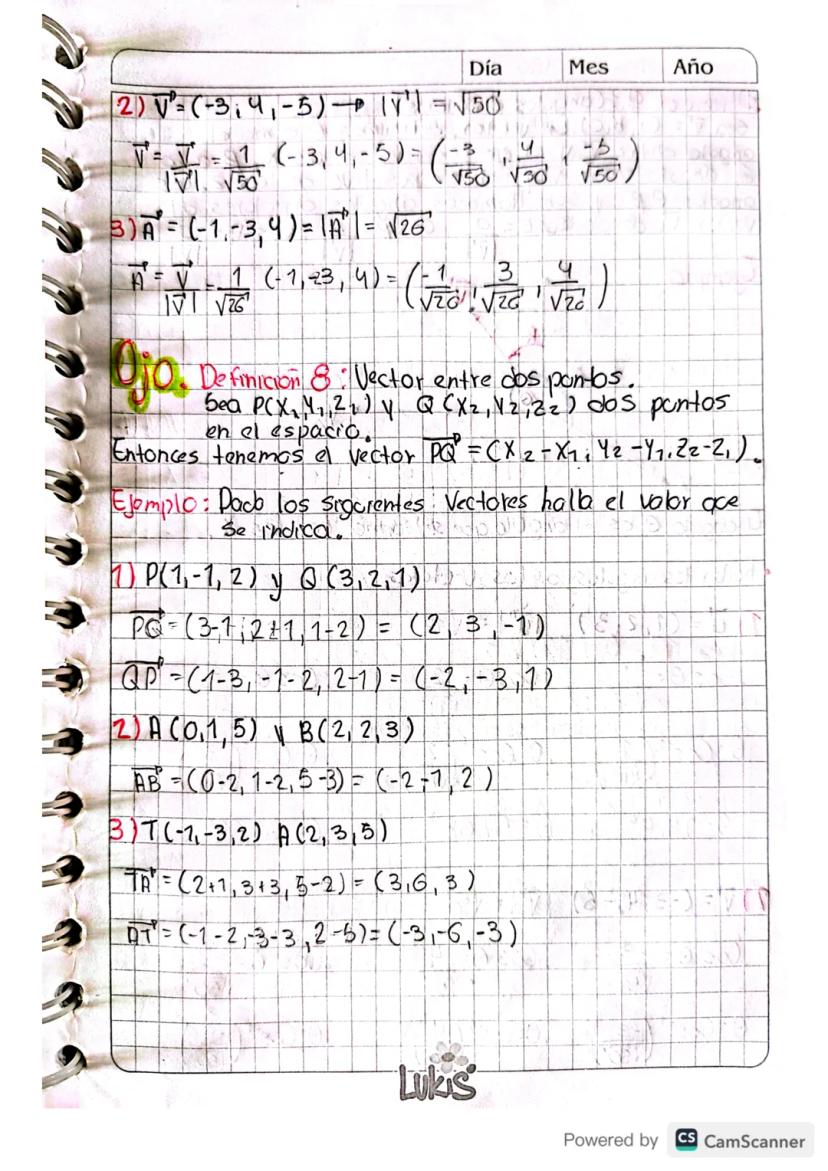 Día Mes Año
2) V⃗ = (-3, 4, -5) → |V⃗| = √50
V⃗ = V⃗/|V⃗| = 1/√50 (-3, 4, -5) = (-3/√50, 4/√50, -5/√50)
3) A⃗ = (-1, -3, 4) = |A⃗| = √26
A⃗ = V⃗/|V⃗| = 1/√26 (-1, -3, 4) = (-1/√26, 3/√26, 4/√26)
Ojo. Definición 8: Vector entre dos puntos.
Sea P(X₁, Y₁, Z₁) y Q(X₂, Y₂, Z₂) dos puntos
en el espacio.
Entonces tenemos el vector PQ⃗ = (X₂-X₁, Y₂-Y₁, Z₂-Z₁).
Ejemplo: Dado los siguientes Vectores halla el valor que
se indica.
1) P(1, -1, 2) y Q(3, 2, 1)
PQ⃗ = (3-1, 2+1, 1-2) = (2, 3, -1)
QP⃗ = (1-3, -1-2, 2-1) = (-2, -3, 1)
2) A(0, 1, 5) y B(2, 2, 3)
AB⃗ = (0-2, 1-2, 5-3) = (-2, -1, 2)
3) T(-1, -3, 2) A(2, 3, 5)
TA⃗ = (2+1, 3+3, 5-2) = (3, 6, 3)
AT⃗ = (-1-2, -3-3, 2-5) = (-3, -6, -3)
LUKIS
Powered by CS CamScanner